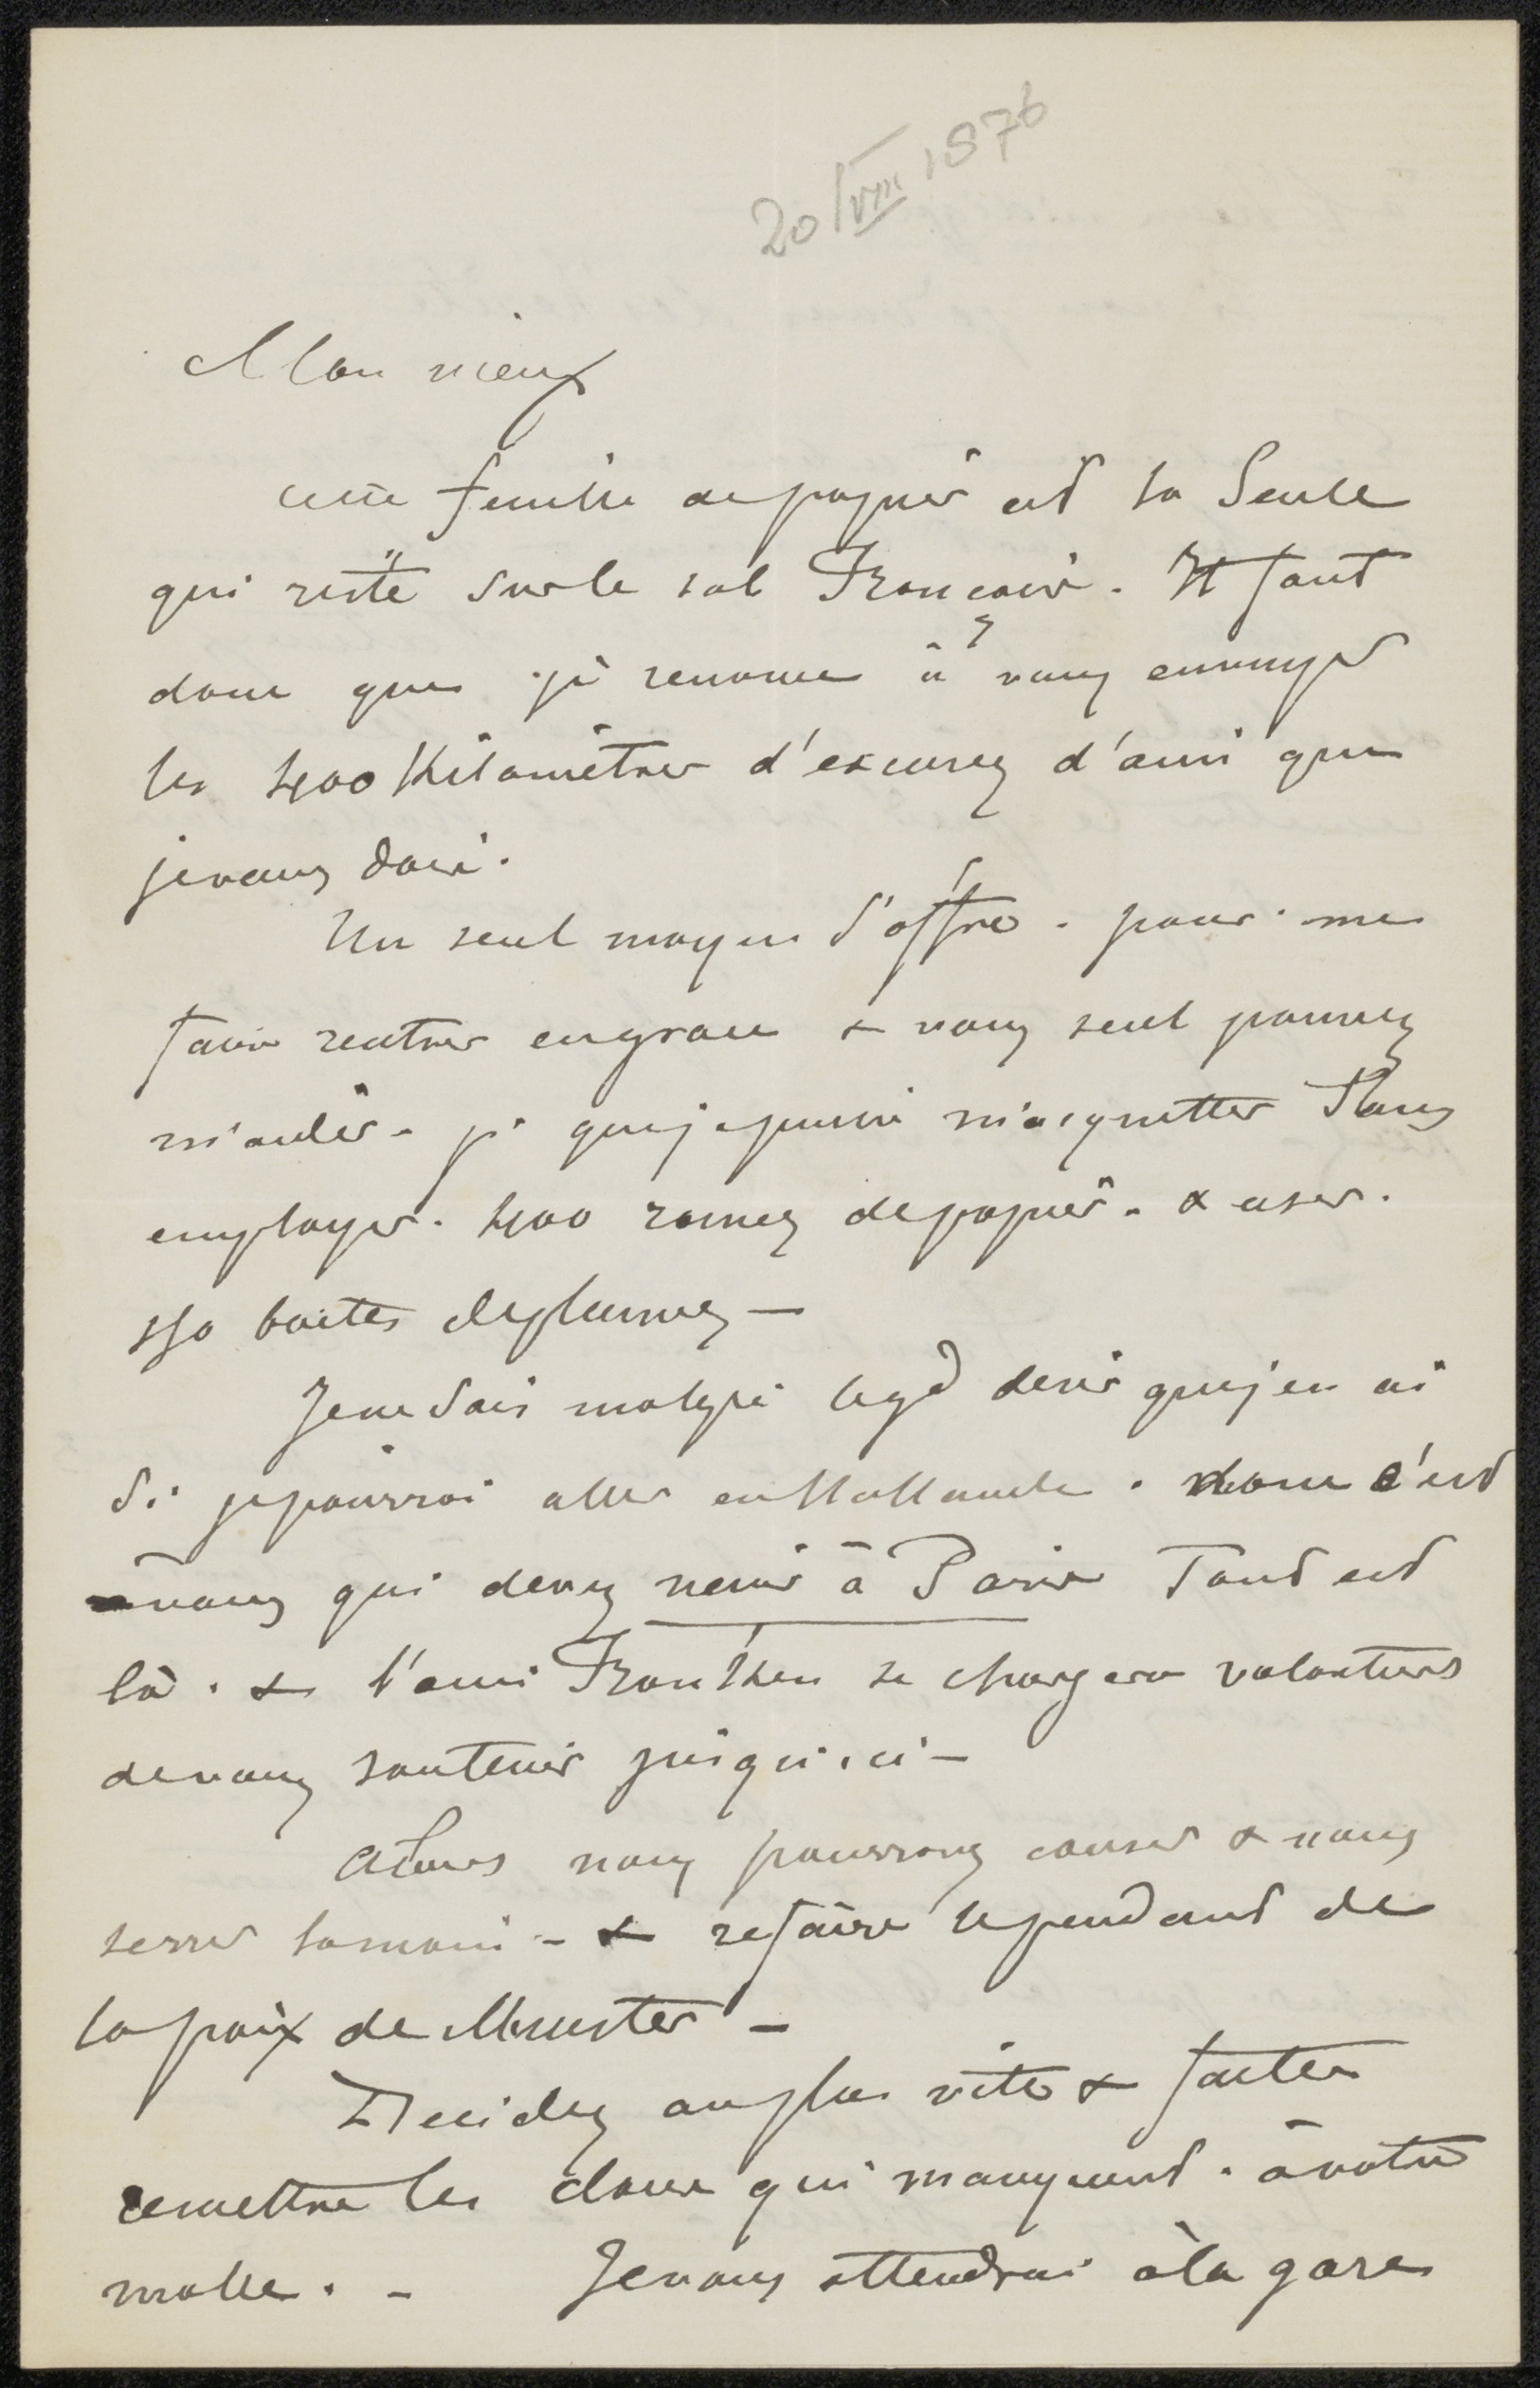 20/VIII 1876
Mon vieux
cette feuille de papier est la Seule
qui reste sur le sol Français. Il faut
donc que je renonce à vous envoyer
les 400 Kilomètres d'excuses d'ami que
je vous dois.
Un seul moyen s'offre. pour. me
faire rentrer en grace & vous seul pouvez
m'aider - pr que je puisse m'acquitter Sans
employer. 400 rames de papier. & user.
150 boites de plumes —
Je ne Sais malgré le gd desir que j'en ai
Si je pourrai aller en Hollande. donc c'est
vous qui devez venir à Paris Tout est
là. & l'ami se chargera volontiers
de vous soutenir jusqu'ici —
Alors nous pourrons causer & nous
serrer la main - & refaire le pendant de
la paix de Munster —
Decidez au plus vite & faites
remettre les clous qui manquent. à votre
malle. - Je vous attendrai à la gare